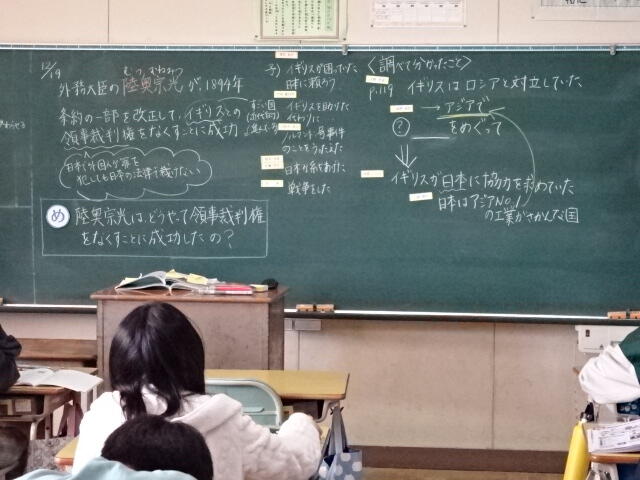 12/19
外務大臣の陸奥宗光が、1894年
むつ むねみつ
条約の一部を改正して、イギリスとの
領事裁判権をなくすことに成功
すごい国
日本で外国人が罪を
犯しても日本の法律で裁けない
め 陸奥宗光は、どうやって領事裁判権
をなくすことに成功したの?
予) イギリスが困っていた
日本に頼ろう
イギリスを助けた
代わりに
ノルマントン号事件
のことをうったえた
日本が糸をあげた
戦争をした
〈調べて分かったこと〉
p.119 イギリスはロシアと対立していた
→ アジアで
? をめぐって
イギリスが日本に協力を求めていた
日本はアジアNo.1
の工業がさかんな国